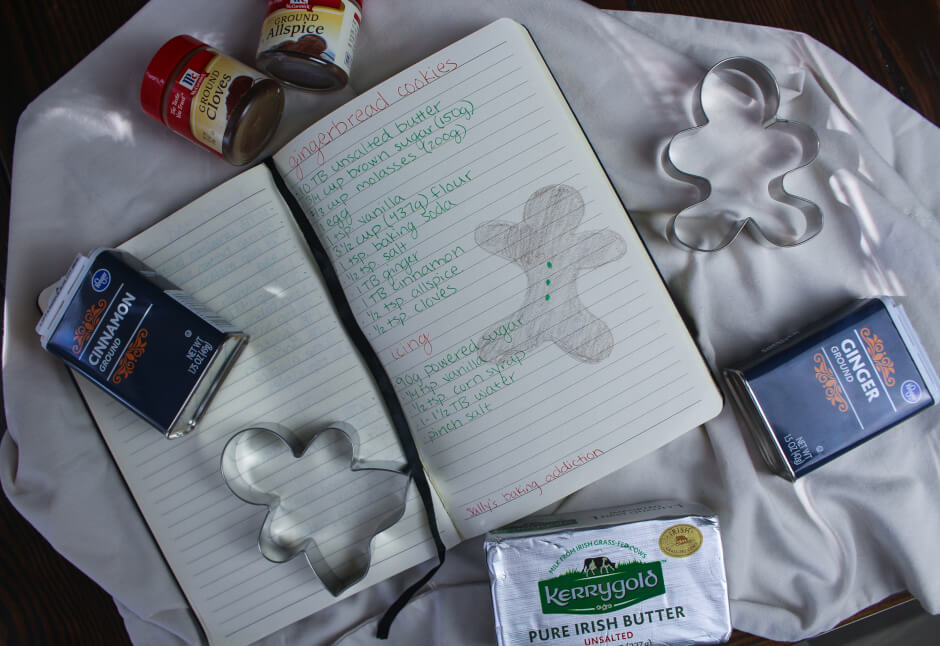 McCormick
GROUND
Allspice
McCormick
The Taste
You Trust
GROUND
Cloves
gingerbread cookies
10 TB unsalted butter
3/4 cup brown sugar (150g)
2/3 cup molasses (200g)
1 egg
1 tsp vanilla
3 1/2 cup (437g) flour
1 tsp baking soda
1/2 tsp salt
1 TB ginger
1 TB cinnamon
1/2 tsp allspice
1/2 tsp cloves
icing
90g powered sugar
1/4 tsp vanilla
1/2 tsp corn syrup
1-1 1/2 TB water
pinch salt
sally's baking addiction
Kroger
CINNAMON
GROUND
NET WT
1.75 OZ (49g)
Kroger
GINGER
GROUND
NET WT
1.5 OZ (42g)
MILK FROM IRISH GRASS-FED COWS
IRISH
Kerrygold
PURE IRISH BUTTER
UNSALTED
(227g)